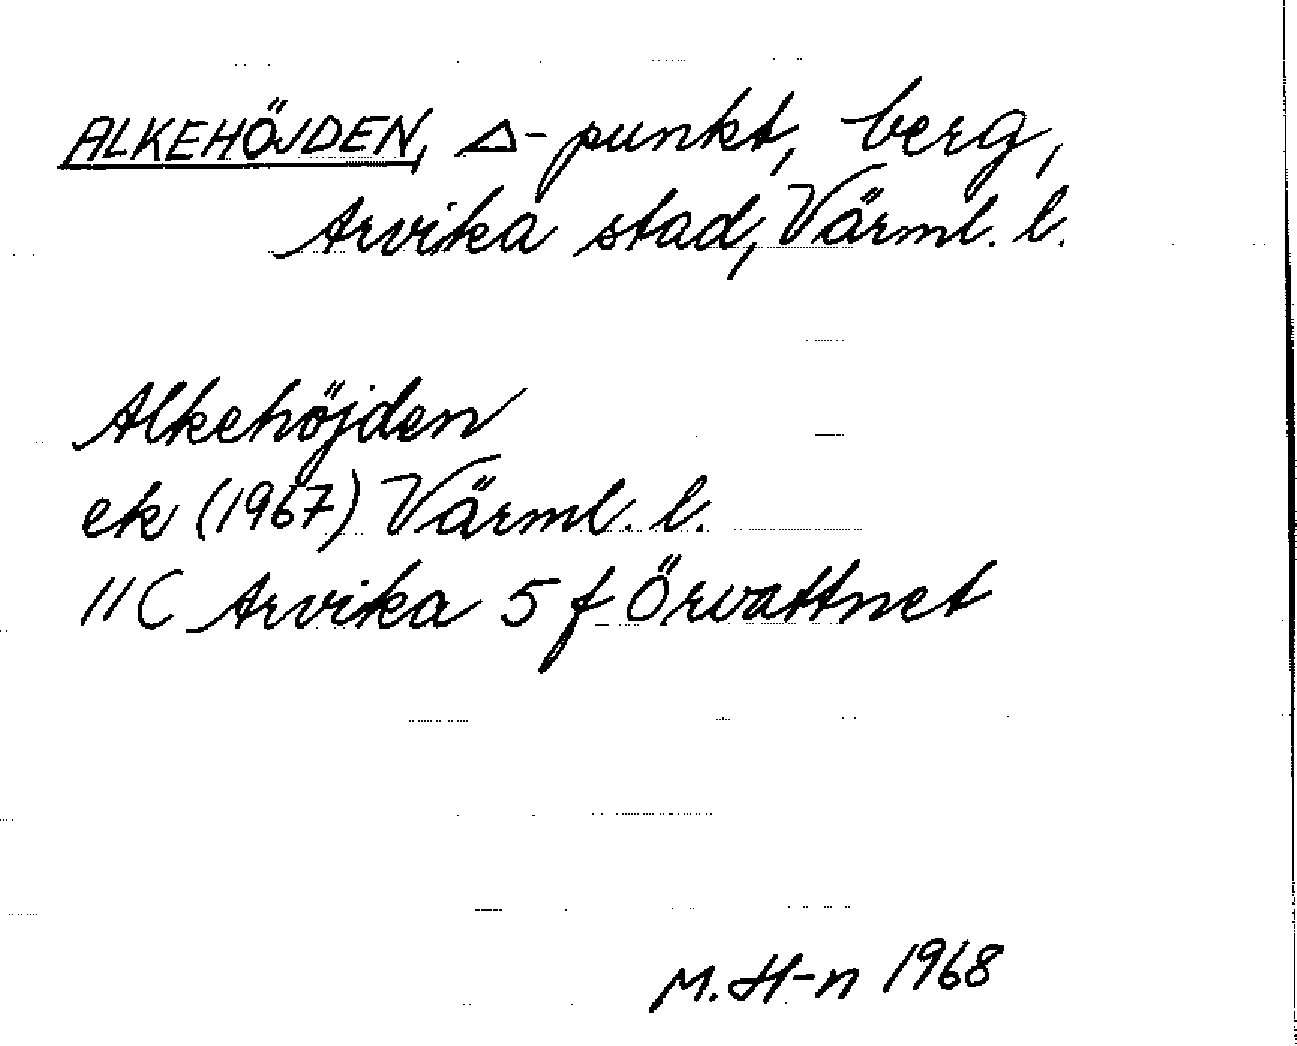 ALKEHÖJDEN, △-punkt, berg,
Arvika stad, Värml. l.
Alkehöjden
ek (1967) Värml. l.
11C Arvika 5 f Örvattnet
M. H-n 1968